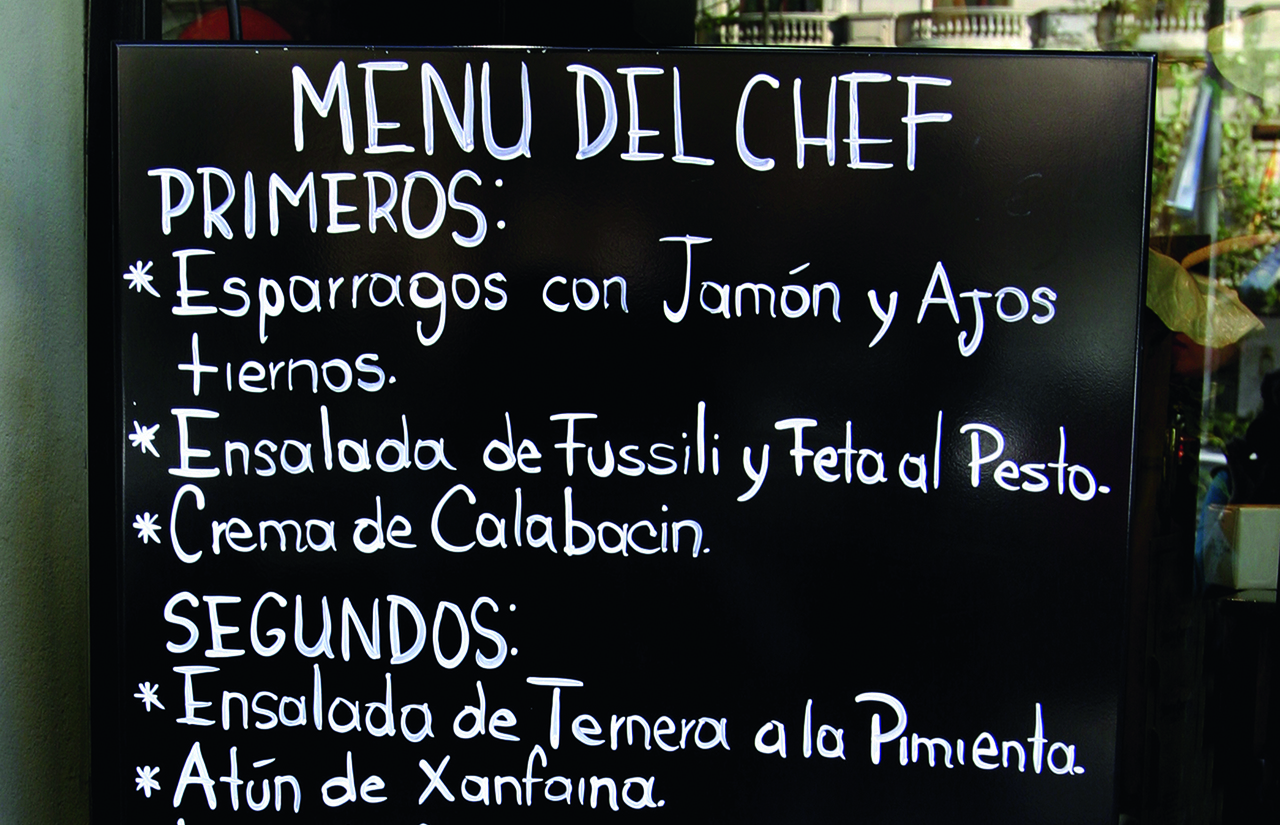 MENU DEL CHEF
PRIMEROS:
* Esparragos con Jamón y Ajos
tiernos.
* Ensalada de Fussili y Feta al Pesto.
* Crema de Calabacin.
SEGUNDOS:
* Ensalada de Ternera a la Pimienta.
* Atún de Xanfaina.